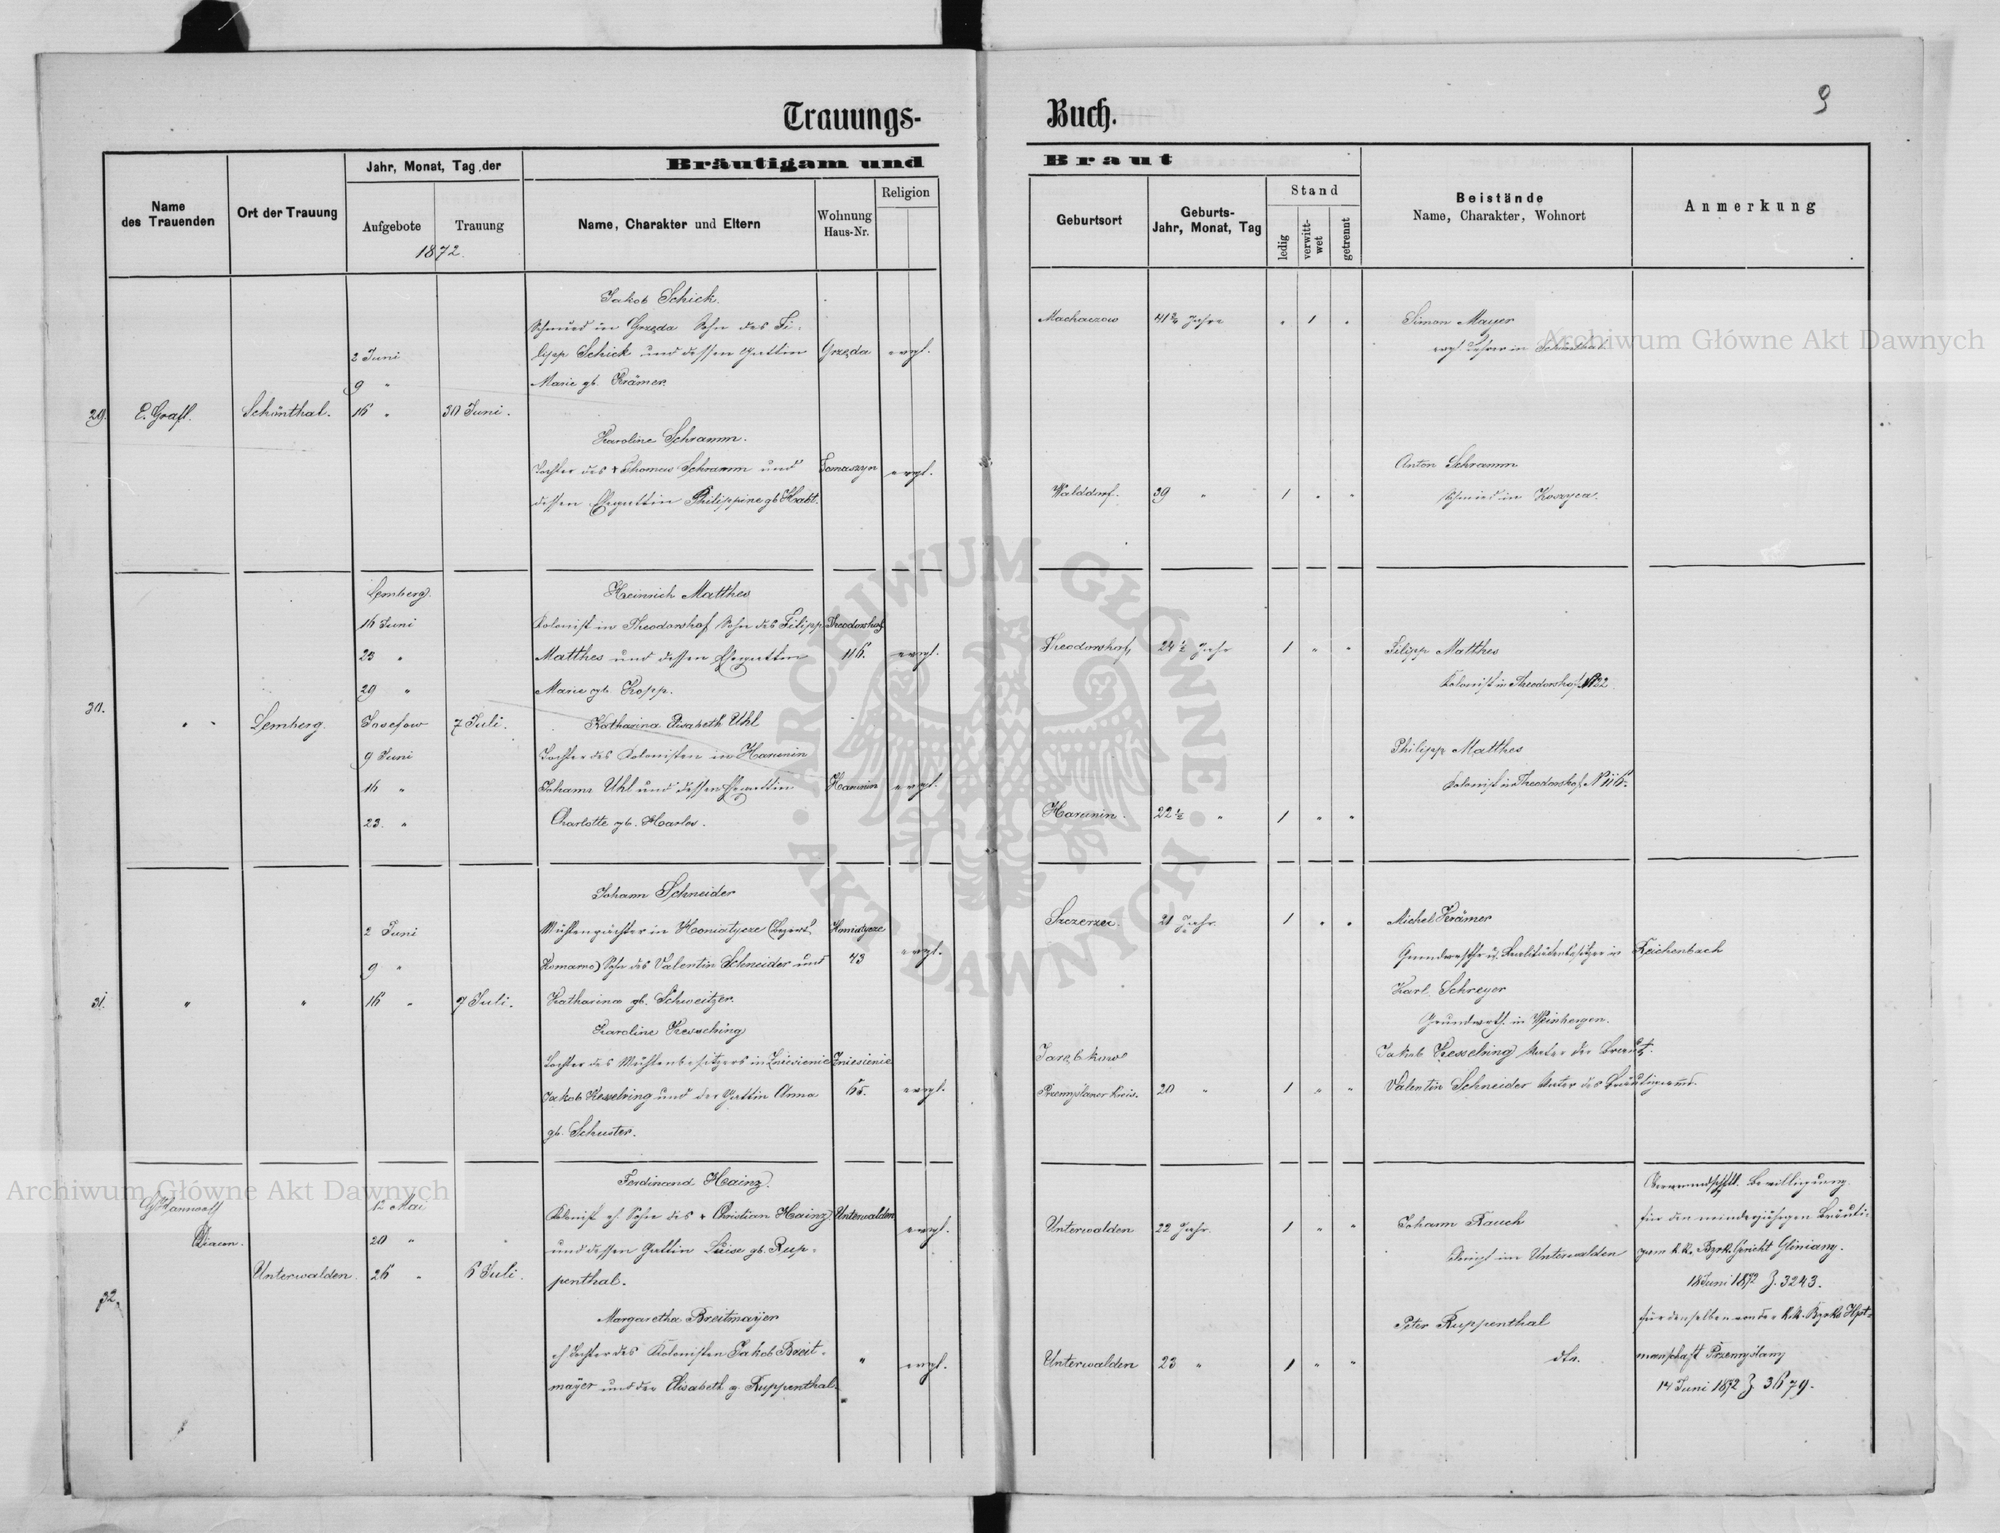 Trauungs-Buch.
9
Name des Trauenden
Ort der Trauung
Jahr, Monat, Tag der
Aufgebote
Trauung
1872.
Bräutigam und Braut
Name, Charakter und Eltern
Wohnung Haus-Nr.
Religion
Geburtsort
Geburts-Jahr, Monat, Tag
Stand
ledig
verwitt-wet
getrennt
Beistände
Name, Charakter, Wohnort
Anmerkung
29.
E. Grafl.
Schönthal.
2 Juni
9 "
16 "
30 Juni.
Jakob Schick.
Schmied in Grzęda Sohn des Fi-
lipp Schick und dessen Gattin
Marie gb. Krämer.
Grzęda
evgl.
Machaczow
41 3/4 Jahre
" 1 "
Simon Mayer
evgl. Lehrer in Schönthal
Karoline Schramm.
Tochter des + Thomas Schramm und
dessen Ehegattin Philippine gb.
Tomaszyn
evgl.
Walddorf.
39 "
1 " "
Anton Schramm
Schmied in Koszyca.
30.
" "
Lemberg.
Lemberg.
16 Juni
23 "
29 "
Josefow
9 Juni
16 "
23. "
7 Juli.
Heinrich Matthes
Kolonist in Theodorshof Sohn des Filipp
Matthes und dessen Ehegattin
Marie gb. Kopp.
Theodorshof
116.
evgl.
Theodorshof
24 1/2 Jahr
1 " "
Filipp Matthes
Kolonist in Theodorshof N 22
Katharina Elisabeth Uhl
Tochter des Kolonisten in Hanunin
Johann Uhl und dessen Ehegattin
Charlotte gb. Harlos.
Hanunin
evgl.
Hanunin.
22 1/2 "
1 " "
Philipp Matthes
Kolonist in Theodorshof N 116.
31.
" "
2 Juni
9 "
16 "
7 Juli.
Johann Schneider
Mühlenpächter in Honiatycze (Bezirk
Komarno) Sohn des Valentin Schneider und
Katharina gb. Schweitzer.
Honiatycze
43
evgl.
Szczerzec.
21 Jahr
1 " "
Michel Krämer
Grundwirth u. Realitätenbesitzer in Reichenbach
Karl Schreyer
Grundwirth in Weinbergen.
Karoline Kesselring
Tochter des Mühlenbesitzers in Zniesienie
Jakob Kesselring und der Gattin Anna
gb. Schuster.
Zniesienie
65.
evgl.
Przemyślaner Kreis.
20 "
1 " "
Jakob Kesselring Vater der Braut.
Valentin Schneider Vater des Bräutigams.
32.
Diacon.
Unterwalden.
12 Mai
20 "
26 "
6 Juli.
Ferdinand Hainz.
Kolonist eh. Sohn des + Christian Hainz
und dessen Gattin Luise gb. Rup-
penthal.
Unterwalden
evgl.
Unterwalden
22 Jahr.
1 " "
Johann Rauch
Kolonist in Unterwalden
Vormundschftl. Bewilligung.
für den minderjährigen Bräuti-
gam k.k. Bzrk. Gericht Gliniany.
18 Juni 1872 Z. 3243.
Margaretha Breitmayer
eh Tochter des Kolonisten Jakob Breit-
mayer und der Elisabeth g. Ruppenthal.
"
evgl.
Unterwalden
23 "
1 " "
Peter Ruppenthal
dto.
für denselben von der k.k. Bzrks Hpt-
manschaft Przemyślany
14 Juni 1872 Z 3679.
Archiwum Główne Akt Dawnych
Archiwum Główne Akt Dawnych
· ARCHIWUM GŁÓWNE · AKT DAWNYCH